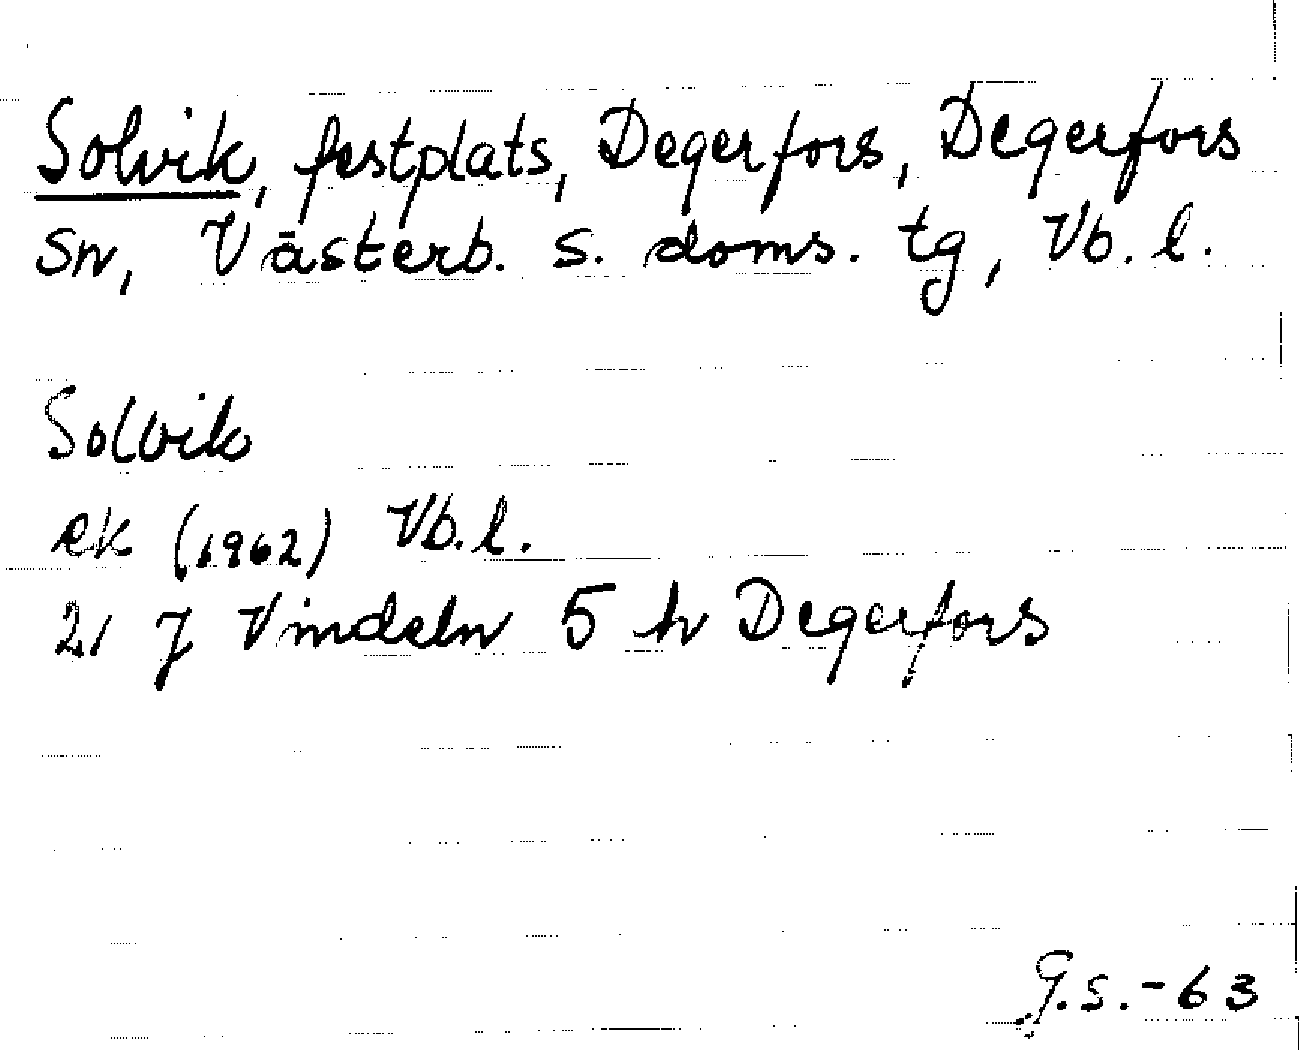 Solvik, festplats, Degerfors, Degerfors
sn, Västerb. s. doms. tg, Vb. l.
Solvik
ek (1962) Vb. l.
21 J Vindeln 5 h Degerfors
G.S.-63